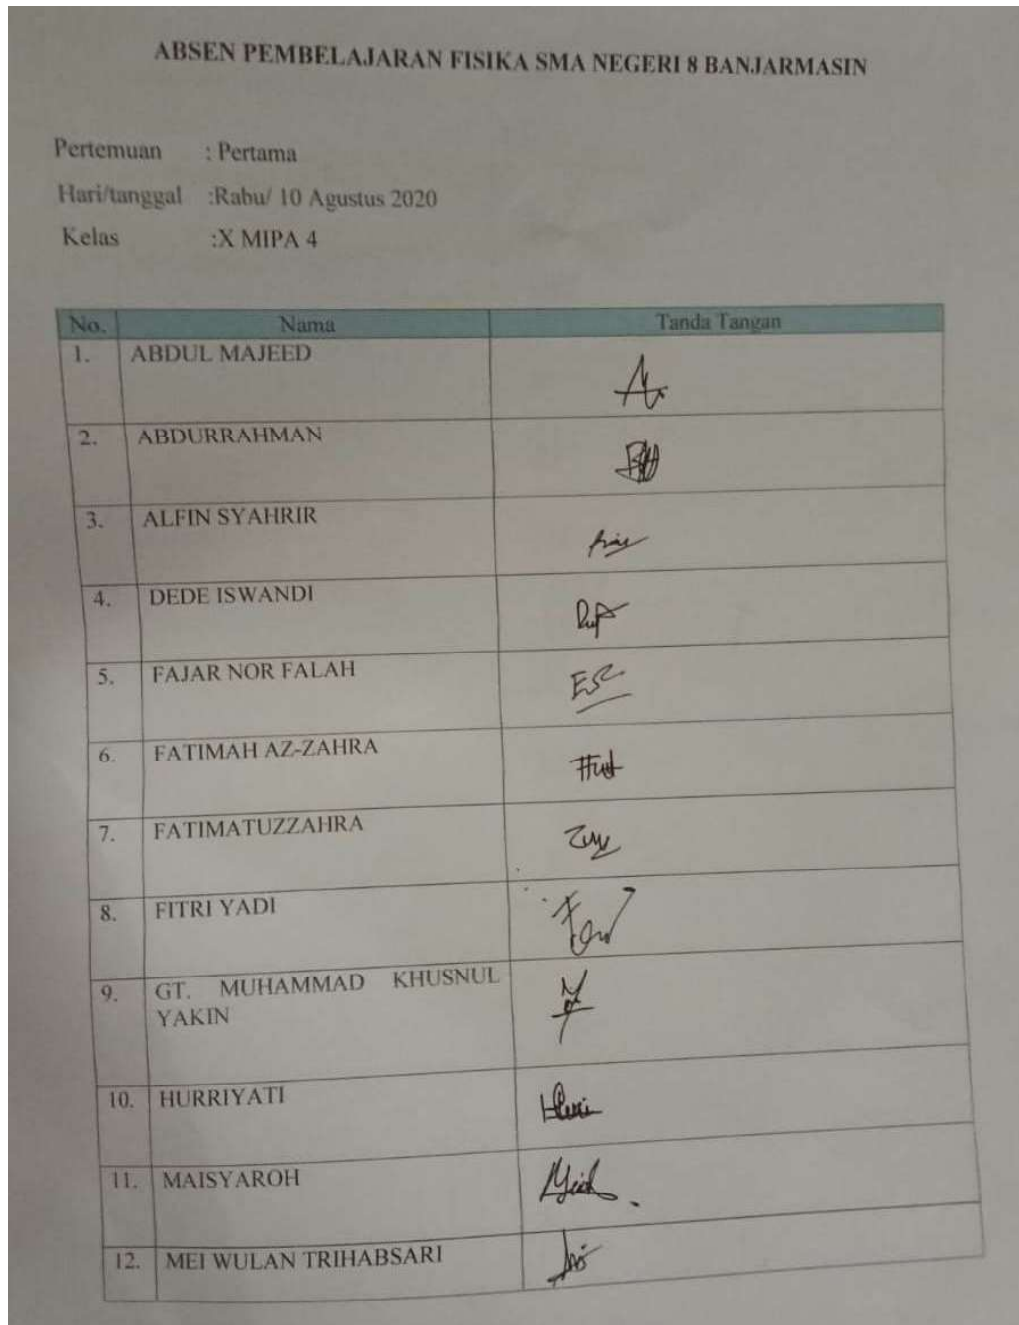 ABSEN PEMBELAJARAN FISIKA SMA NEGERI 8 BANJARMASIN
Pertemuan : Pertama
Hari/tanggal :Rabu/ 10 Agustus 2020
Kelas :X MIPA 4
No. Nama Tanda Tangan
1. ABDUL MAJEED
2. ABDURRAHMAN
3. ALFIN SYAHRIR
4. DEDE ISWANDI
5. FAJAR NOR FALAH
6. FATIMAH AZ-ZAHRA
7. FATIMATUZZAHRA
8. FITRI YADI
9. GT. MUHAMMAD KHUSNUL
YAKIN
10. HURRIYATI
11. MAISYAROH
12. MEI WULAN TRIHABSARI